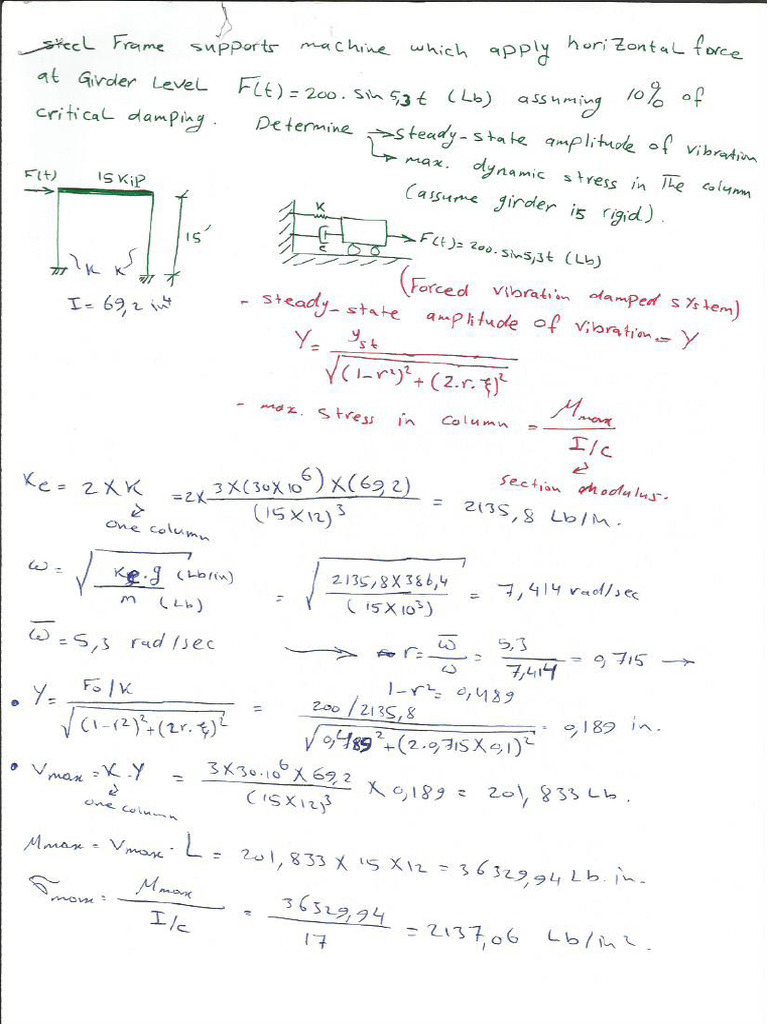 steel Frame supports machine which apply horizontal force
at Girder Level F(t) = 200. sin 5,3 t (Lb) assuming 10% of
critical damping. Determine → steady-state amplitude of vibration
→ max. dynamic stress in The column
(assume girder is rigid).
F(t) 15 Kip
15'
K K
I = 69,2 in⁴
K
c
F(t) = 200. sin 5,3 t (Lb)
(Forced vibration damped system)
- steady-state amplitude of vibration = Y
Y = y_st / √((1-r²)² + (2.r.ξ)²)
- max. stress in column = M_max / (I/c)
section modulus.
Ke = 2 x K = 2 x 3 x (30 x 10⁶) x (69,2) / (15 x 12)³ = 2135,8 Lb/M.
one column
ω = √(Ke.g (Lb/in) / m (Lb)) = √(2135,8 x 386,4 / (15 x 10³)) = 7,414 rad/sec
ω̅ = 5,3 rad/sec → r = ω̅/ω = 5,3 / 7,414 = 0,715 →
1-r² = 0,489
• Y = Fo/K / √((1-r2)² + (2r.ξ)²) = 200/2135,8 / √(0,489² + (2.0,715 x 0,1)²) = 0,189 in.
• Vmax = K.Y = 3 x 30.10⁶ x 69,2 / (15 x 12)³ x 0,189 = 201,833 Lb.
one column
Mmax = Vmax . L = 201,833 x 15 x 12 = 36329,94 Lb.in.
σmax = Mmax / (I/c) = 36329,94 / 17 = 2137,06 Lb/in².